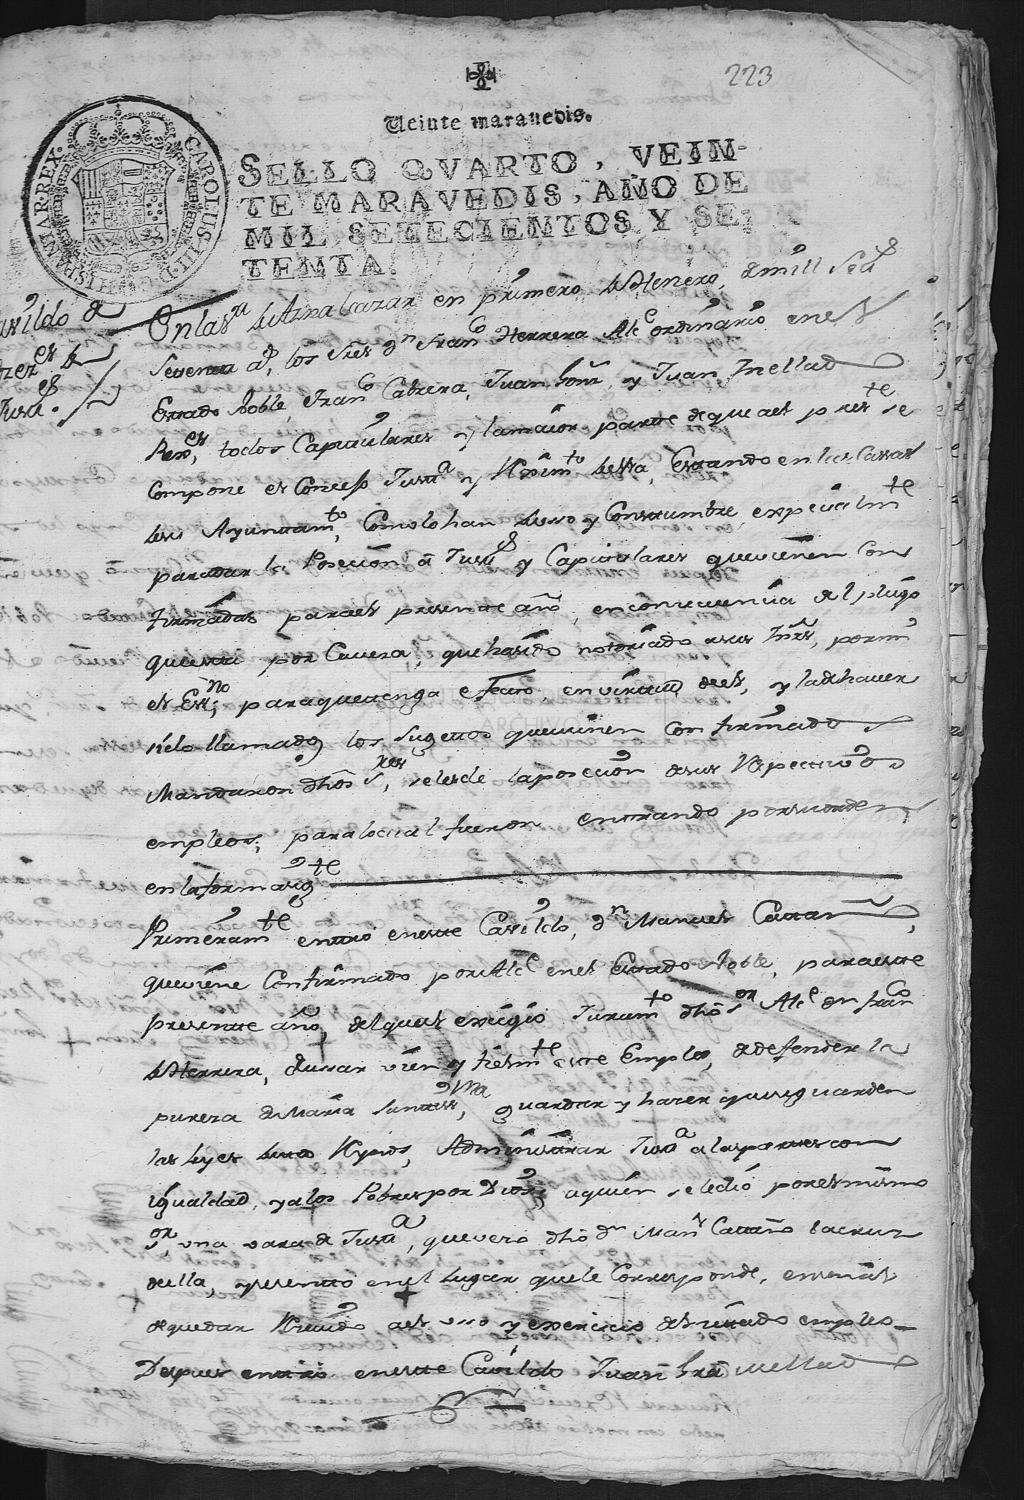 223
Veinte maravedis.
SELLO QVARTO, VEIN-
TE MARAVEDIS, AÑO DE
MIL SETECIENTOS Y SE-
TENTA.
CAROLUS III D G HISPANIAR REX
En la s.ª de Aznalcazar en primero de Henero, de mill Set.s
Setenta a.s, los Sres dn Franco Herrera Alce ordinario en el
Estado Noble, Franco Cabrera, Juan Gonz, y Juan Mellad
Rexes, todos Capitulares y la maior parte de que al preste se
compone el Concejo Justa y Reximto desta, Estando en las Casas
de su Ayuntamto, Como lo han de uso y Constumbre, expecialmte
para dar la Poseción a Justs y Capitulares que vienen Con
firmados para el presente año, en consecuencia del pliego
que esta por Cavesa, que ha sido notoriado a sus Mrds, por mi
el Esno; para que tenga efecto en virtud de el, y la de haver
sido llamados los Sugettos que vienen Confirmados
Mandaron dhos Sres, se les de la poseción de sus Respectivos
empleos; para lo cual fueron entrando por su orden
en la forma sigte
Primeramte entró en este Cavildo, dn Manuel Cataño,
que viene Confirmado por Alce en el Estado Noble, para este
presente año, del qual exsigio Juramto dho Sor Alce dn Franco
de Herrera, de usar vien y fielmte este Empleo, de defender la
pureza de Maria Santissma, guardar y hazer que se guarden
las leyes destos Reynos, Administrar Justa a las partes con
igualdad, y a los Pobres por Dios; a quien se le dió por el mismo
Sor, una vara de Justa, que vesó dho dn Manl Cataño la cruz
de ella, y se sento en el lugar que le Corresponde, en señal
de quedar Resivido al uso y exercicio del sitado empleo
Despues entró en este Cavildo Juan Mellad